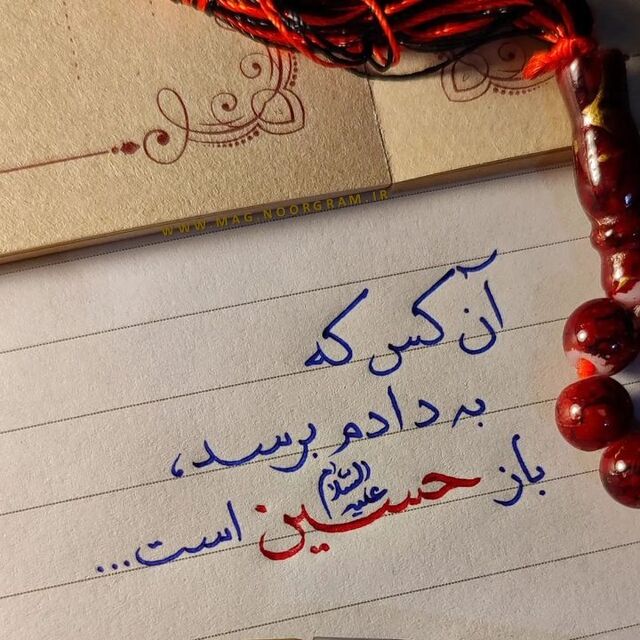 WWW.MAG.NOORGRAM.IR
آن کس که
به دادم برسد،
باز حسین علیه السّلام است...